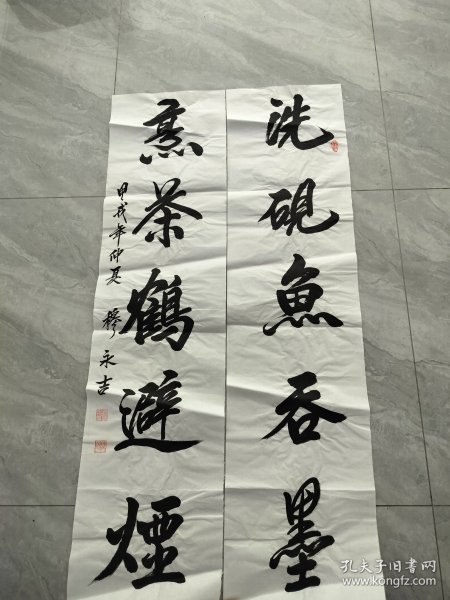 洗硯魚吞墨
烹茶鶴避煙
甲戌年仲夏 穆永吉
孔夫子旧书网
www.kongfz.com